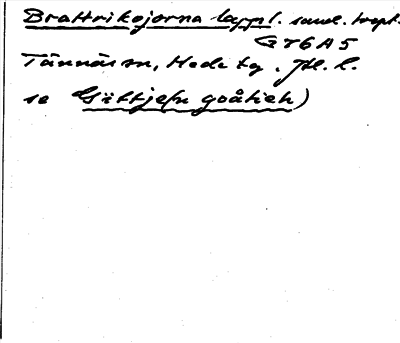 Brattrikojorna lappl. saml. trakt.
GT6A5
Tännäs sn, Hede tg. Jtl. l.
se Gïttjefn goåtieh)